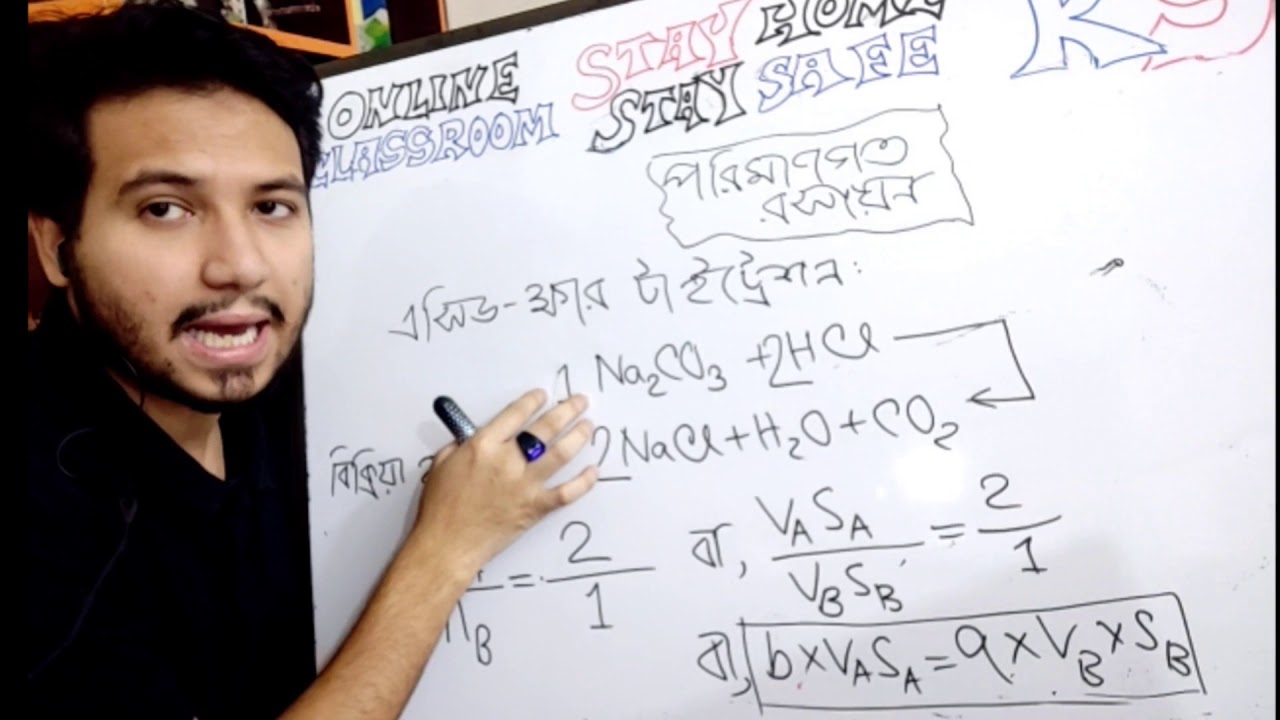 ONLINE
CLASSROOM
STAY HOME
STAY SAFE
RS
পরিমাণগত
রসায়ন
এসিড-ক্ষার টাইট্রেশন:
1 Na₂CO₃ + 2HCl
বিক্রিয়া 2NaCl + H₂O + CO₂
n_B = 2/1
বা, V_A S_A / V_B S_B = 2/1
বা, b × V_A S_A = a × V_B × S_B